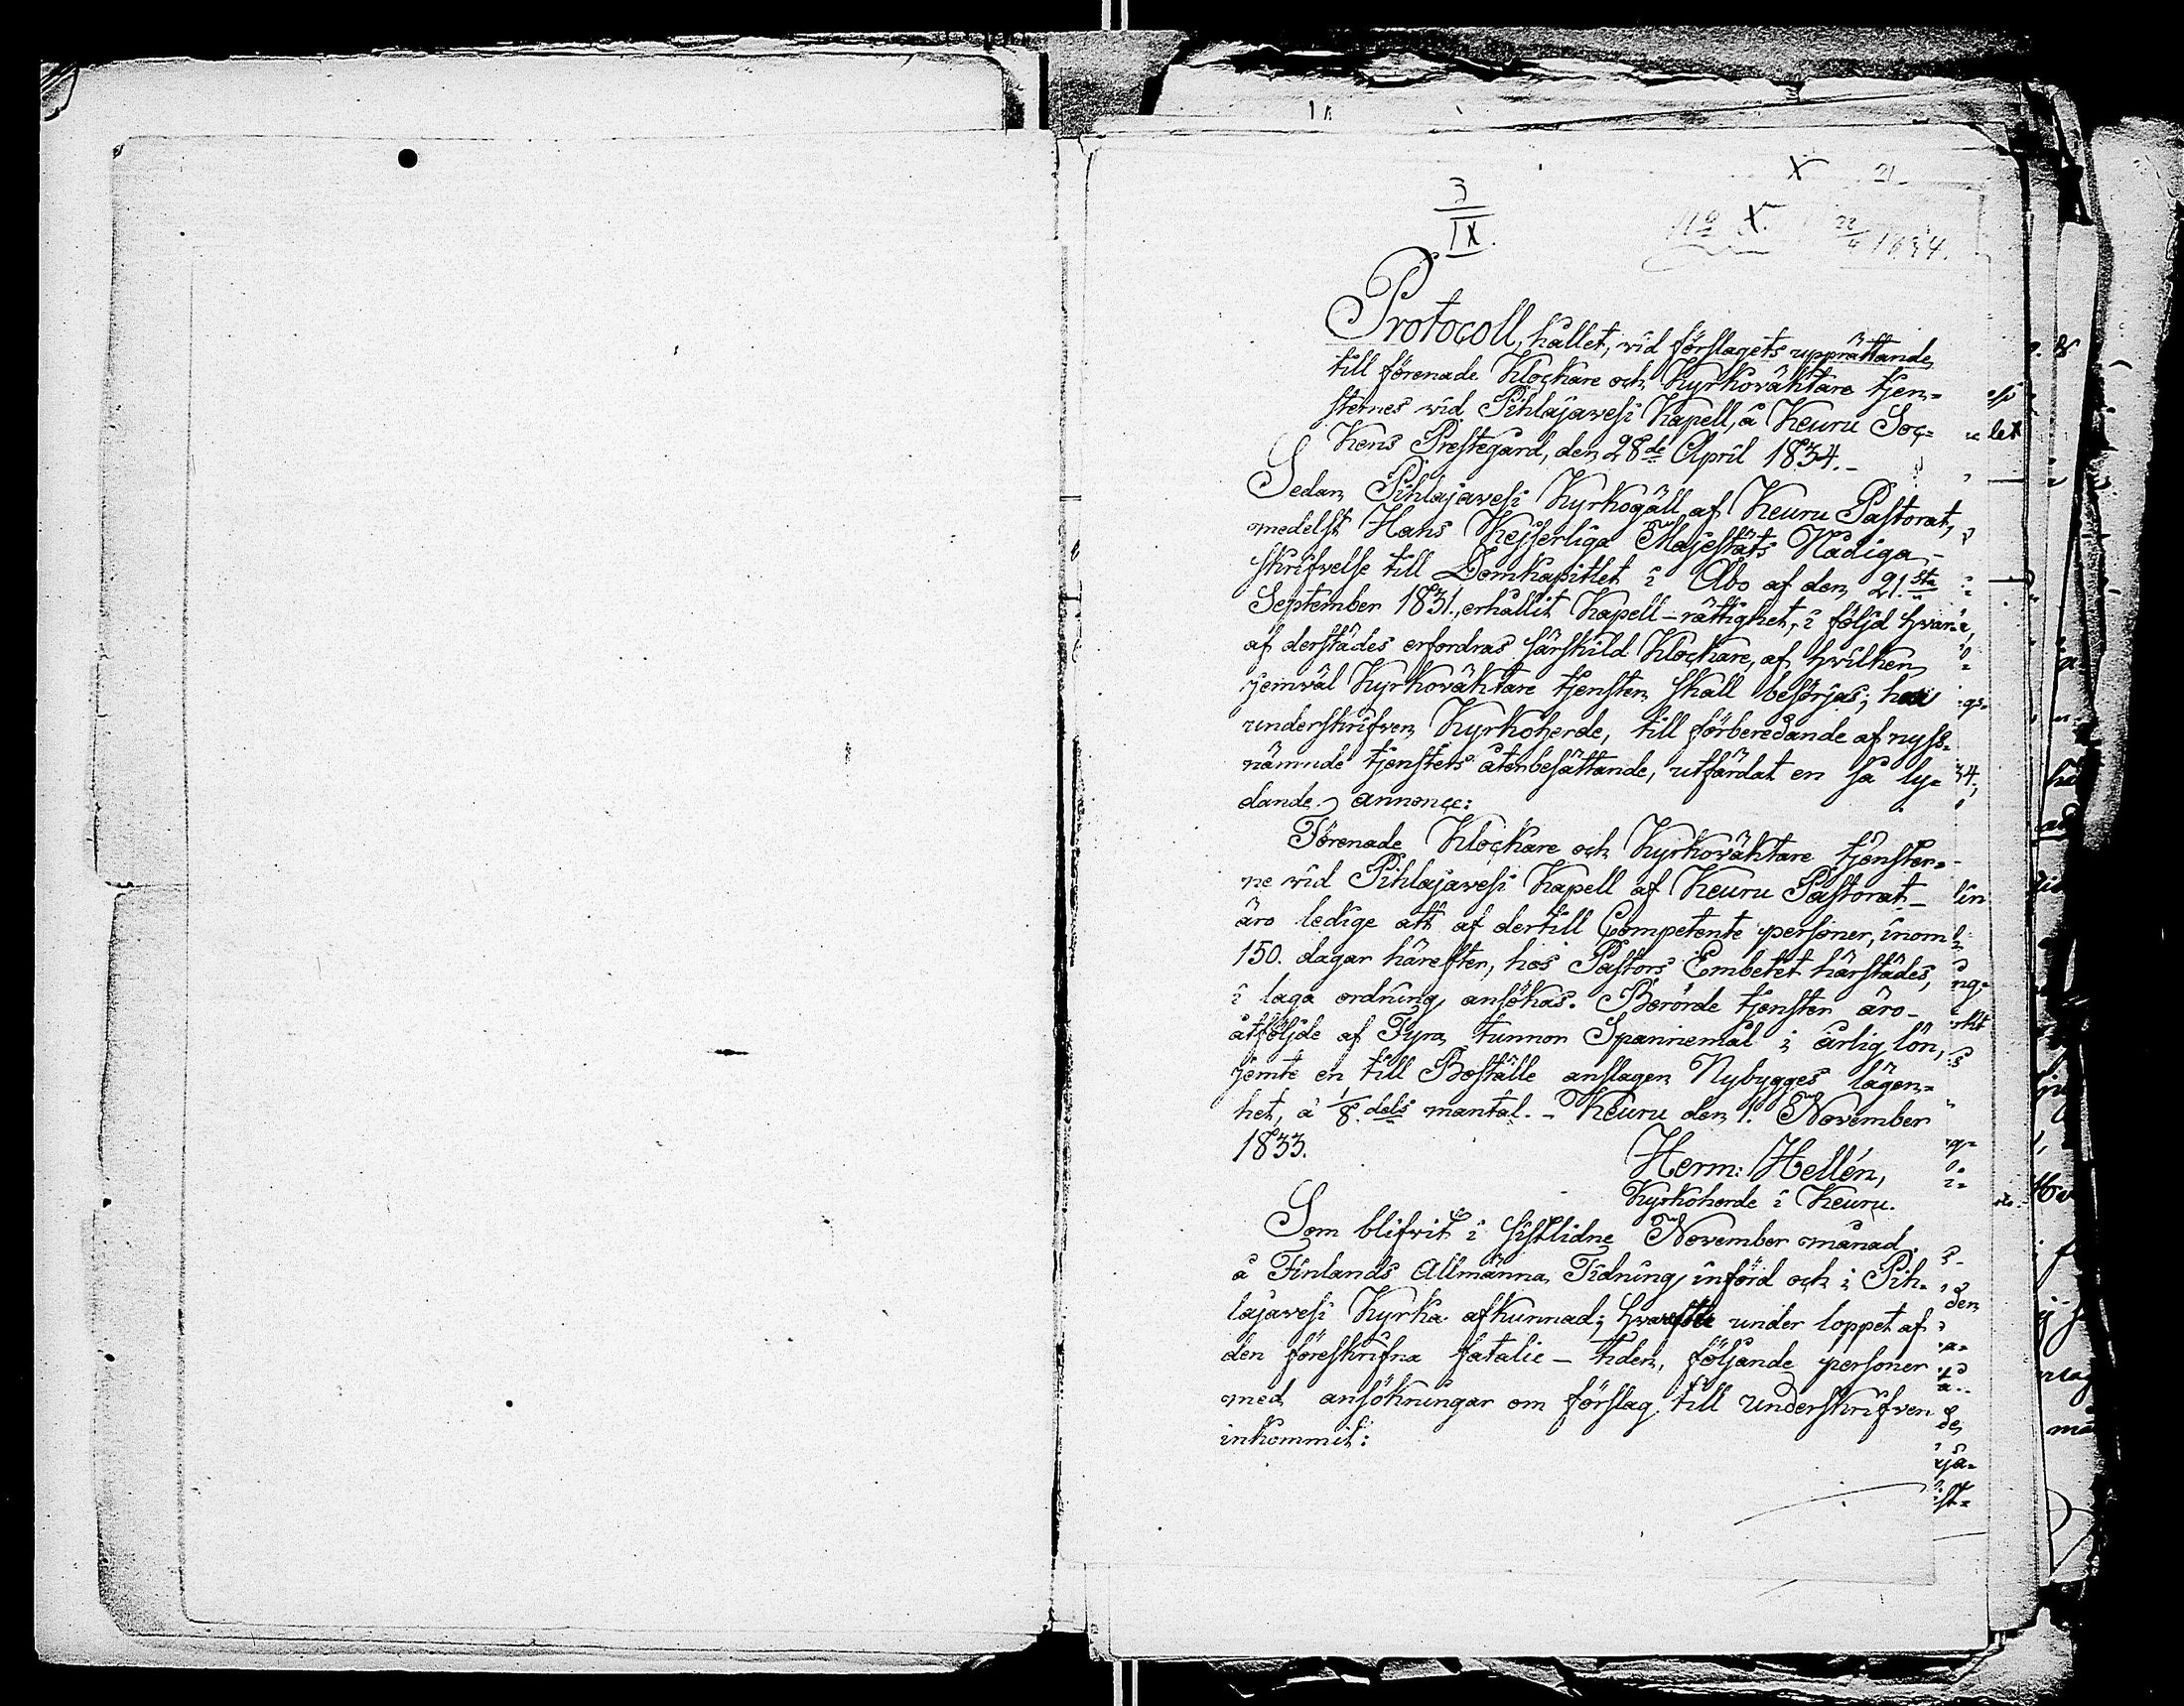 X 21
3
IX.
No X. 22/4 1834.
Protocoll, hållet, vid förslagets upprättande
till förenade Klockare och Kyrkoväktare tjen=
sternes vid Pihlajavesi Kapell, å Keuru Soc=
kens Prestegård, den 28de April 1834.-
Sedan Pihlajavesi Kyrkogäll af Keuru Pastorat,
medelst Hans Kejserliga Majestäts Nådiga
skrifvelse till Domkapitlet i Åbo af den 21.sta
September 1831., erhållit Kapell-rättighet, i följd hvar=
af derstädes erfordras särskild Klockare, af hvilken
jemväl Kyrkoväktare tjensten skall besörjas; har
underskrifven Kyrkoherde, till förberedande af nyss=
nämnde tjensters återbesättande, utfärdat en så ly=
dande annonce:
Förenade Klockare och Kyrkoväktare tjenster=
ne vid Pihlajavesi Kapell af Keuru Pastorat
äro ledige att af dertill Competente personer, inom
150. dagar härefter, hos Pastors Embetet härstädes,
i laga ordning, ansökas. Berörde tjenster äro
åtföljde af Fyra tunnor Spannemål i årlig lön,
jemte en till Boställe anslagen Nybygges lägen=
het, à 1/8. dels mantal. - Keuru den 1. November
1833.
Herm: Hellén,
Kyrkoherde i Keuru.
Som blifvit i sistlidne November månad
å Finlands Allmänna Tidning, införd och i Pih=
lajavesi Kyrka afkunnad; hvarefter under loppet af
den föreskrifna fatalie-tiden, följande personer
med ansökningar om förslag till underskrifven
inkommit: